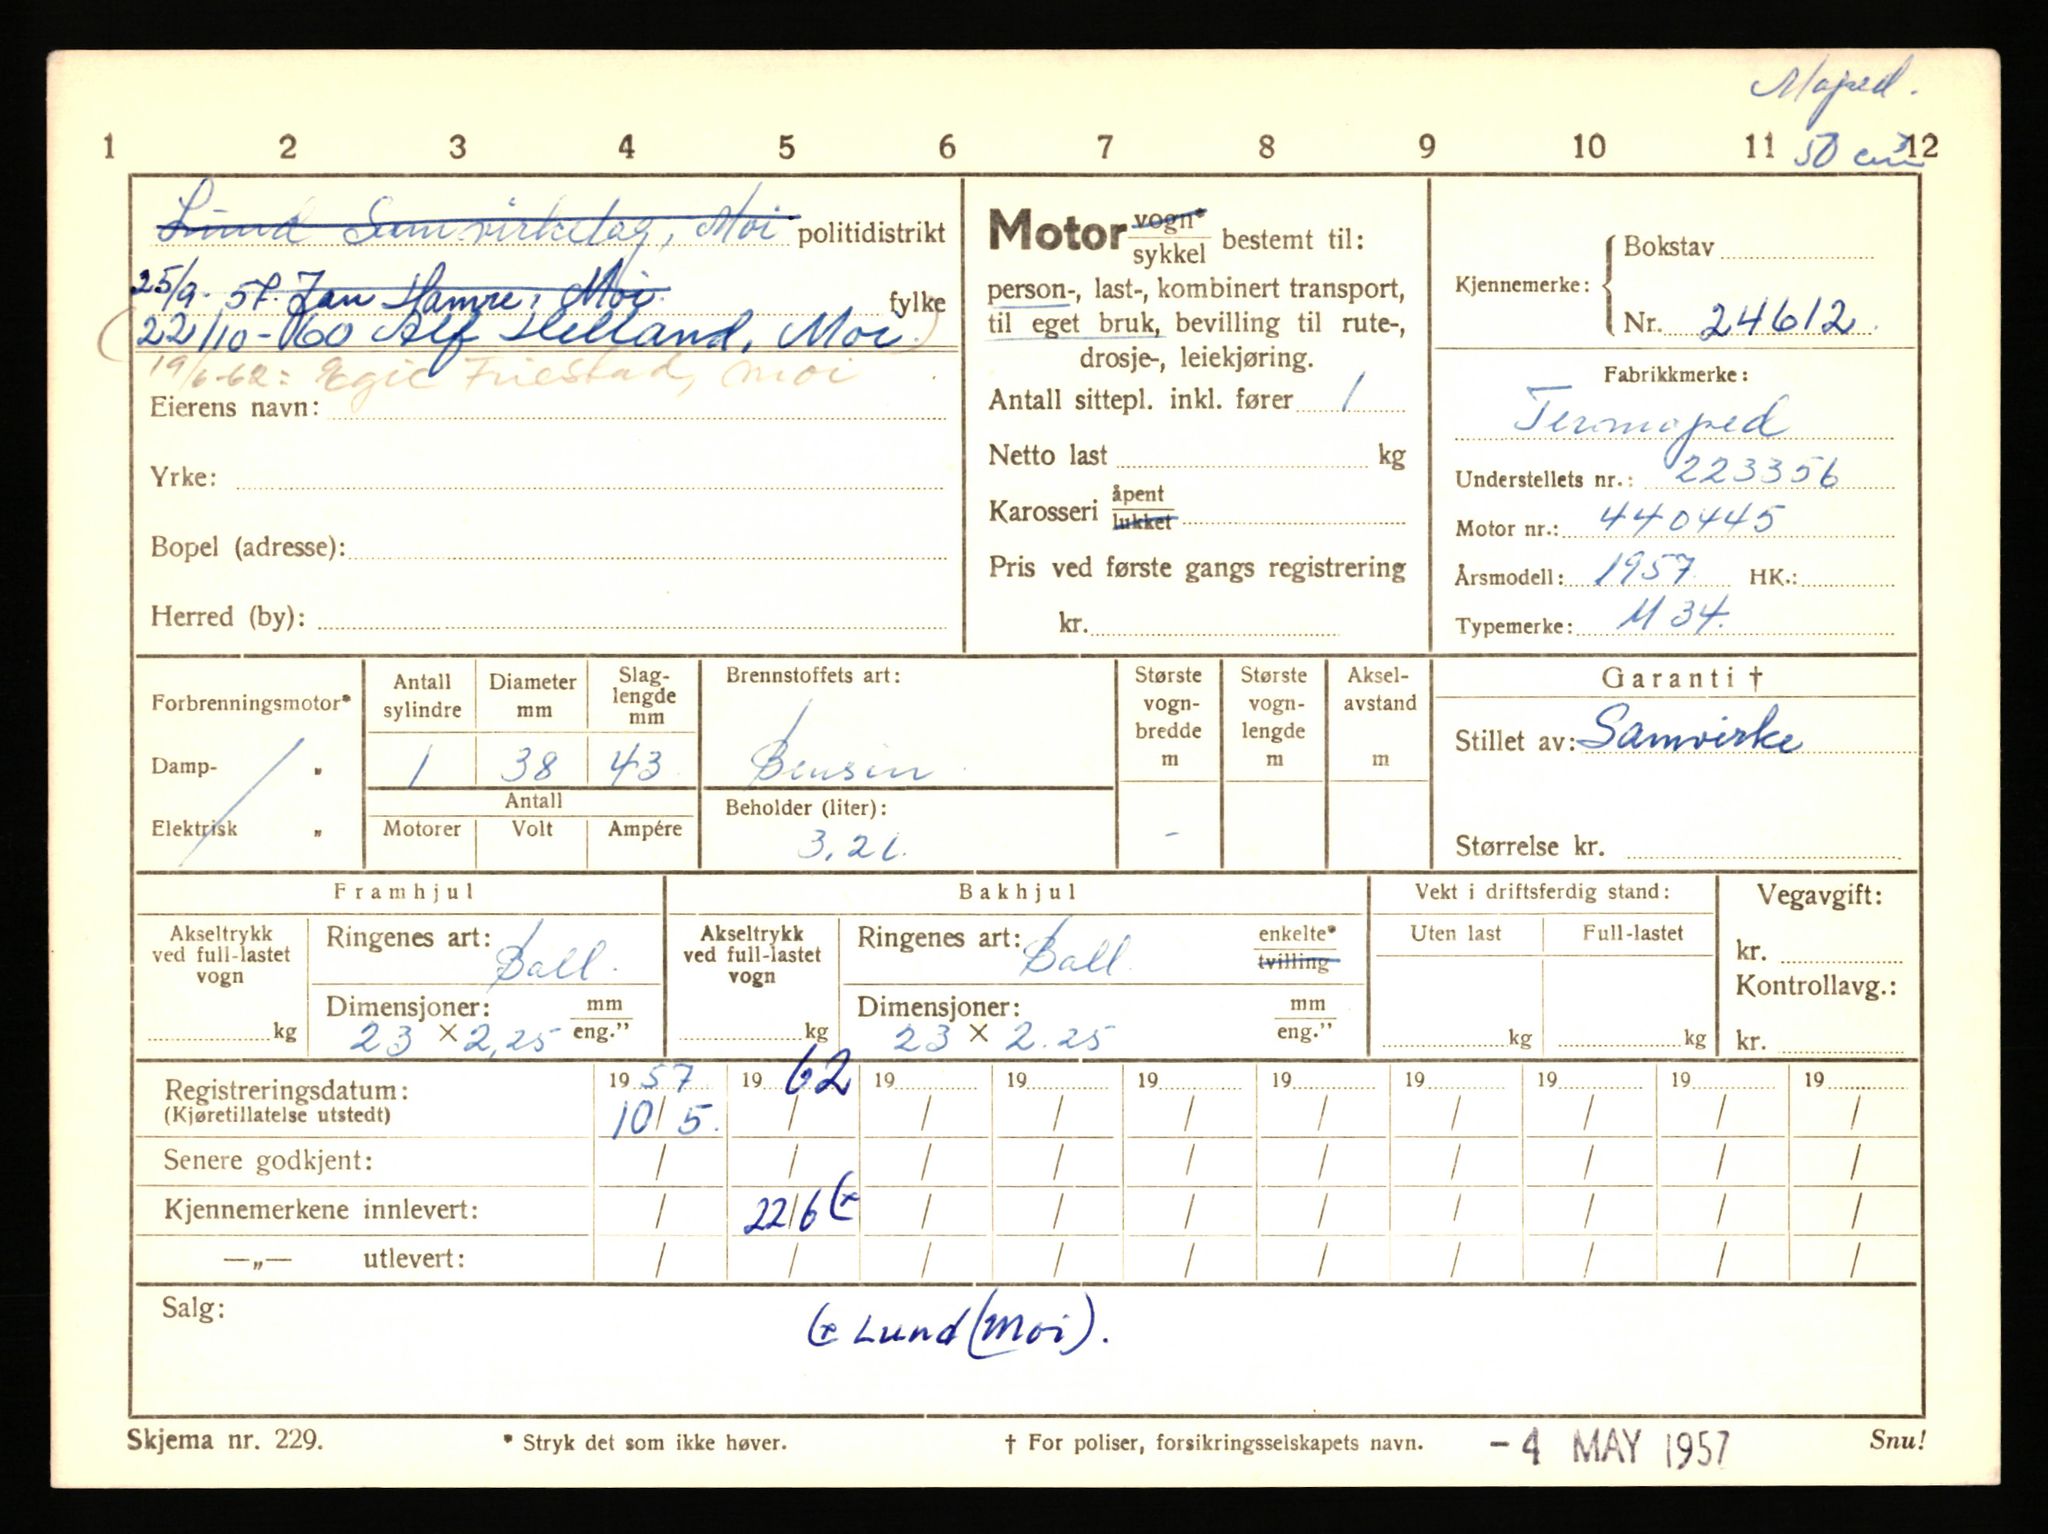 Moped.
50 cm³
1 2 3 4 5 6 7 8 9 10 11 12
Lund Samvirkelag, Moi politidistrikt
25/9-57. Jan Hamre, Moi. fylke
(22/10-60 Alf Helland, Moi.)
19/6-62: Egil Friestad, Moi
Eierens navn:
Yrke:
Bopel (adresse):
Herred (by):
Motor vogn* / sykkel bestemt til:
person-, last-, kombinert transport,
til eget bruk, bevilling til rute-,
drosje-, leiekjøring.
Antall sittepl. inkl. fører 1
Netto last kg
Karosseri åpent / lukket
Pris ved første gangs registrering
kr.
Kjennemerke: Bokstav
Nr. 24612.
Fabrikkmerke:
Termoped
Understellets nr.: 223356
Motor nr.: 440445
Årsmodell: 1957. HK.:
Typemerke: M 34.
Forbrenningsmotor*
Damp- „
Elektrisk „
Antall sylindre 1
Diameter mm 38
Slag-lengde mm 43
Antall
Motorer Volt Ampére
Brennstoffets art:
Bensin
Beholder (liter):
3,2 l.
Største vogn-bredde m -
Største vogn-lengde m
Aksel-avstand m
Garanti †
Stillet av: Samvirke
Størrelse kr.
Framhjul
Akseltrykk ved full-lastet vogn kg
Ringenes art: Ball.
Dimensjoner: mm / eng.”
23 × 2,25
Bakhjul
Akseltrykk ved full-lastet vogn kg
Ringenes art: Ball. enkelte* / tvilling
Dimensjoner: mm / eng.”
23 × 2.25
Vekt i driftsferdig stand:
Uten last Full-lastet
kg kg
Vegavgift:
kr.
Kontrollavg.:
kr.
Registreringsdatum: 19 57 19 62 19 19 19 19 19 19 19 19
(Kjøretillatelse utstedt) 10/5. / / / / / / / / /
Senere godkjent: / / / / / / / / / /
Kjennemerkene innlevert: / 22/6 (x / / / / / / / /
—„— utlevert: / / / / / / / / / /
Salg:
(x Lund (Moi).
Skjema nr. 229. * Stryk det som ikke høver. † For poliser, forsikringsselskapets navn. -4 MAY 1957 Snu!